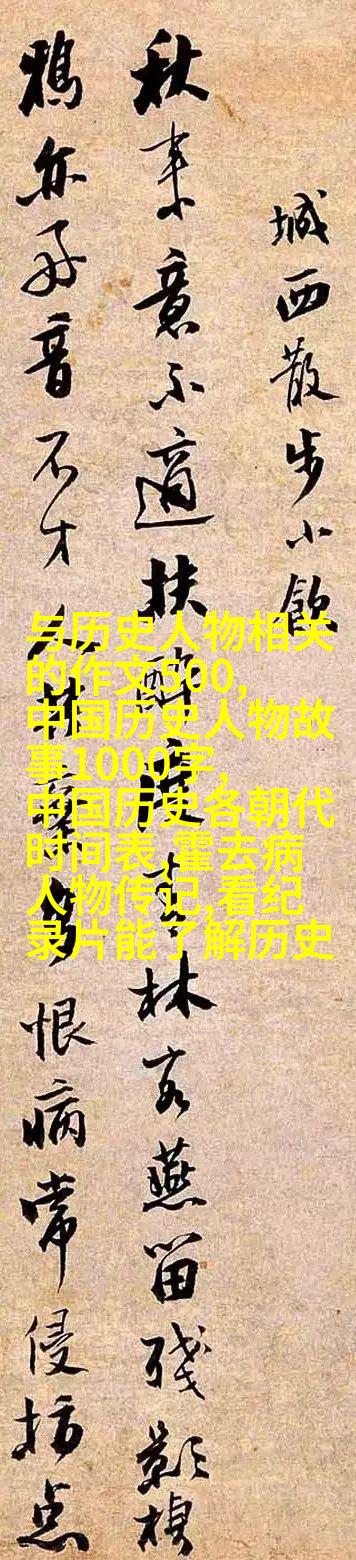 城西散步小飲
秋来意不適扶醉林客燕留殘影
鴉亦好音不才人棄多恨病常侵点
与历史人物相关
的作文500,
中国历史人物故
事1000字,
中国历史各朝代
时间表,霍去病
人物传记,看纪
录片能了解历史